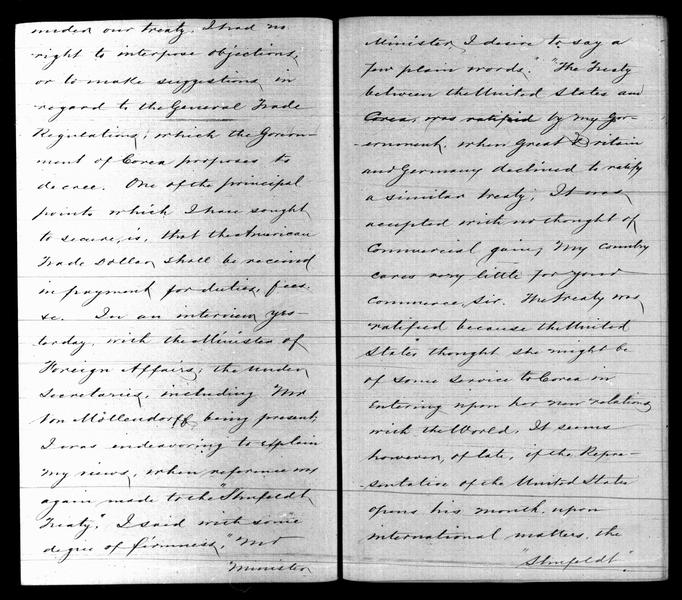 under our treaty, I had no
right to interpose objections,
or to make suggestions, in
regard to the General Trade
Regulations, which the Govern-
ment of Corea proposes to
decree. One of the principal
points which I have sought
to secure, is, that the American
Trade Dollar, shall be received
in payment for duties, fees.
&c. In an interview yes-
terday, with the Minister of
Foreign Affairs, the Under
Secretaries, including Mr
von Möllendorff being present,
I was endeavoring to explain
my views, when reference was
again made to the "Shufeldt
Treaty". I said with some
degree of firmness, "Mr
Minister
Minister, I desire to say a
few plain words." "The Treaty
between the United States and
Corea, was ratified by my Gov-
ernment, when Great Britain
and Germany declined to ratify
a similar treaty; It was,
accepted with no thought of
Commercial gain, My country
cares very little for your
Commerce, Sir. The Treaty was,
ratified because the United
States thought she might be
of some service to Corea in
Entering upon her new relations
with the World. It seems
however, of late, if the Repre-
sentative of the United States
opens his mouth upon
international matters, the
"Shufeldt"